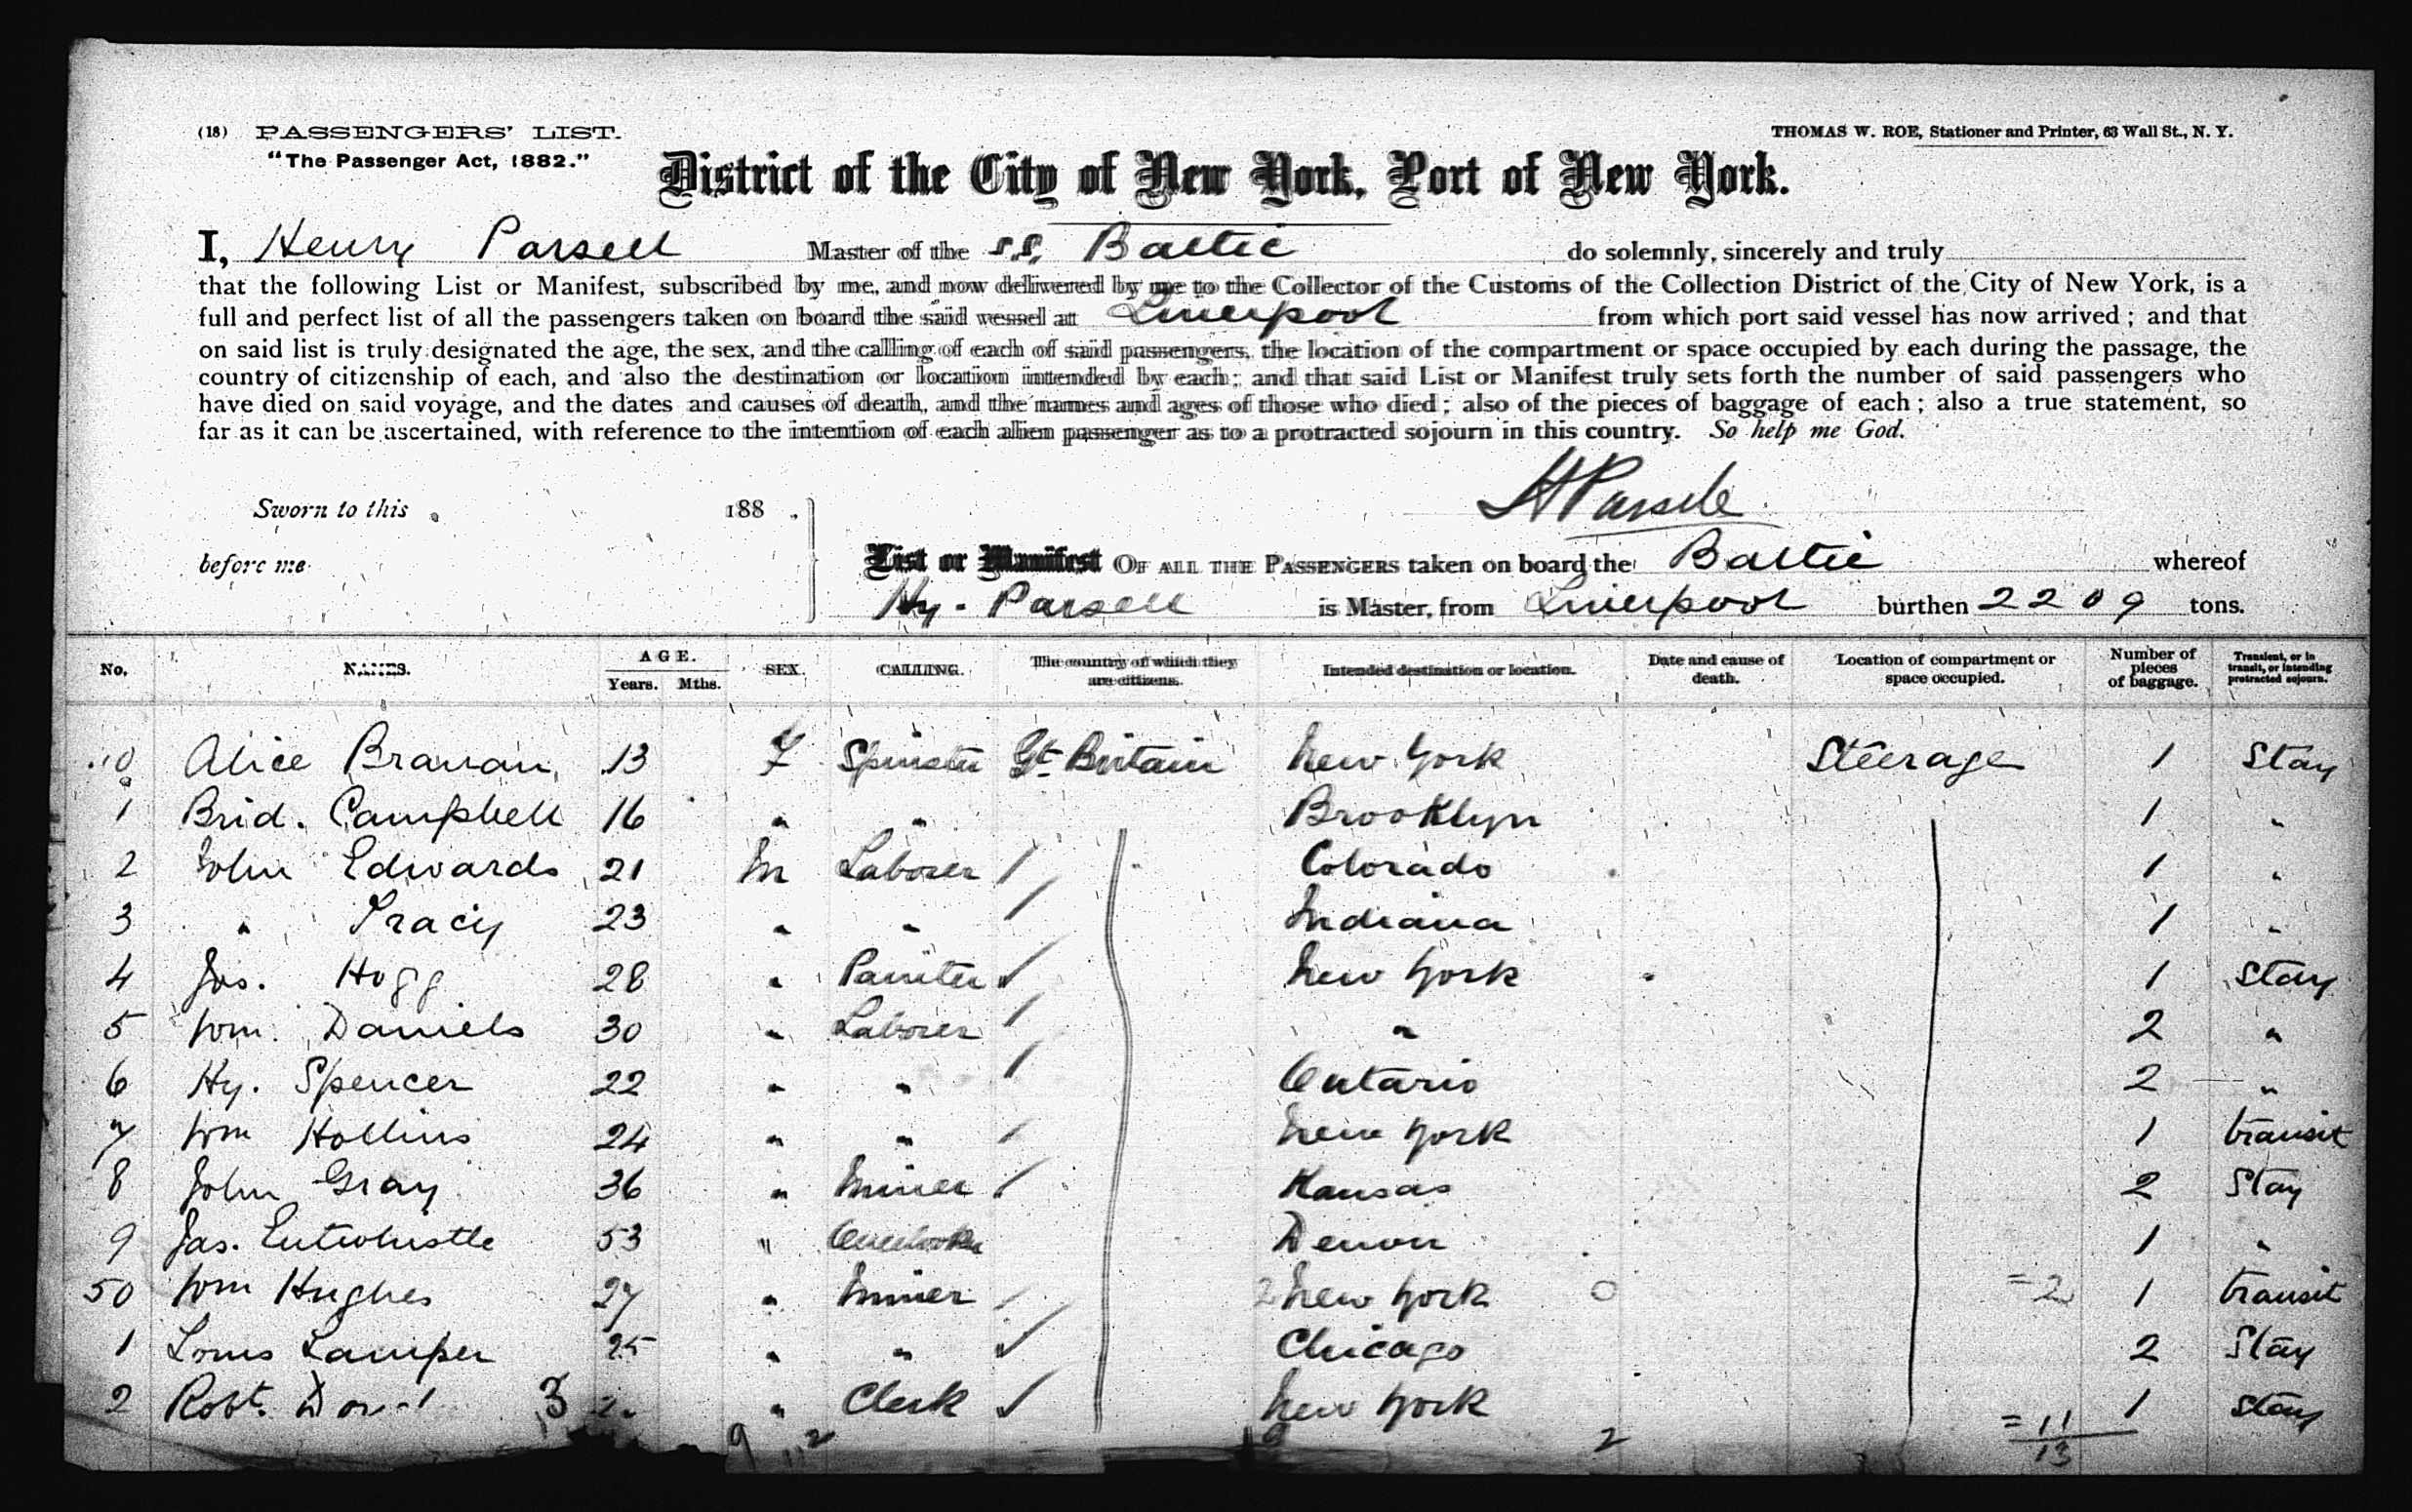 (18) PASSENGERS' LIST.
THOMAS W. ROE, Stationer and Printer, 63 Wall St., N. Y.
"The Passenger Act, 1882."
District of the City of New York, Port of New York.
I, Henry Parsell Master of the S.S. Baltic do solemnly, sincerely and truly
that the following List or Manifest, subscribed by me, and now delivered by me to the Collector of the Customs of the Collection District of the City of New York, is a
full and perfect list of all the passengers taken on board the said vessel at Liverpool from which port said vessel has now arrived; and that
on said list is truly designated the age, the sex, and the calling of each of said passengers, the location of the compartment or space occupied by each during the passage, the
country of citizenship of each, and also the destination or location intended by each; and that said List or Manifest truly sets forth the number of said passengers who
have died on said voyage, and the dates and causes of death, and the names and ages of those who died; also of the pieces of baggage of each; also a true statement, so
far as it can be ascertained, with reference to the intention of each alien passenger as to a protracted sojourn in this country. So help me God.
HParsell
Sworn to this 188
before me
List or Manifest OF ALL THE PASSENGERS taken on board the Baltic whereof
Hy. Parsell is Master, from Liverpool burthen 2209 tons.
No. NAMES. AGE. Years. Mths. SEX. CALLING. The country of which they are citizens. Intended destination or location. Date and cause of death. Location of compartment or space occupied. Number of pieces of baggage. Transient, or in transit, or intending protracted sojourn.
Alice 13 F Spinster Gt Britain New York Steerage 1 Stay
1 Brid. Campbell 16 " " Brooklyn 1 "
2 John Edwards 21 M Laborer Colorado 1 "
3 " Tracy 23 " " Indiana 1 "
4 Jos. Hogg 28 " Painter New York 1 Stay
5 Wm. Daniels 30 " Laborer " 2 "
6 Hy. Spencer 22 " " Ontario 2 "
7 Wm Hollins 24 " " New York 1 transit
8 John Gray 36 " Miner Kansas 2 Stay
9 Jas. Entwhistle 53 " 1 "
50 Wm Hughes 27 " Miner 2 New York 0 =2 1 transit
1 Louis Lamper 25 " " Chicago 2 Stay
2 Robt. 3 " Clerk New York 1 Stay
9 2 2 =11
13